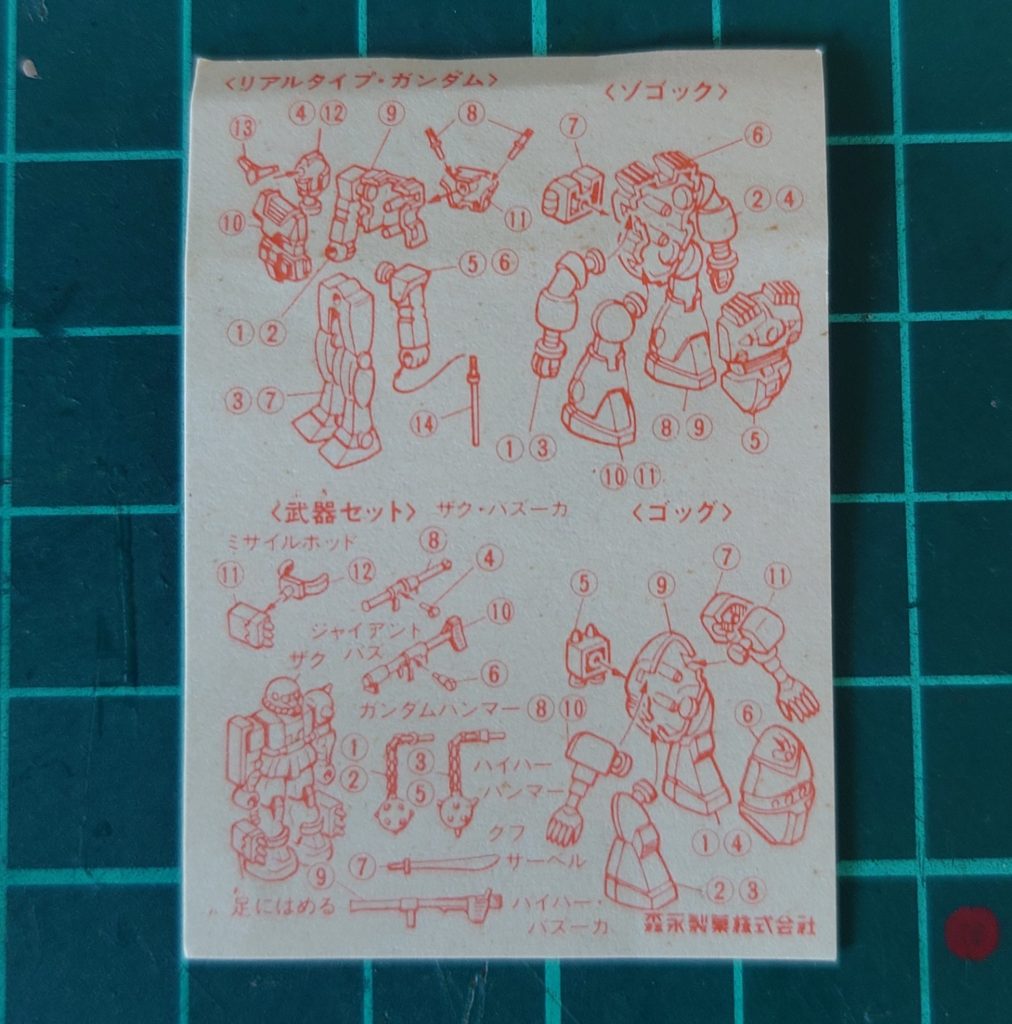 〈リアルタイプ・ガンダム〉
④ ⑫
⑨
⑧
⑬
⑩
⑪
⑤ ⑥
① ②
③ ⑦
⑭
〈ゾゴック〉
⑦
⑥
② ④
① ③
⑧ ⑨
⑤
⑩ ⑪
〈武器セット〉
ザク・バズーカ
ミサイルポッド
⑧
④
⑪
⑫
⑩
ジャイアント
バズ
ザク
⑥
ガンダムハンマー
①
②
③
⑤
ハイパー
ハンマー
グフ
サーベル
⑦
⑨
足にはめる
ハイパー・
バズーカ
〈ゴッグ〉
⑦
⑪
⑤
⑨
⑧ ⑩
⑥
① ④
② ③
森永製菓株式会社